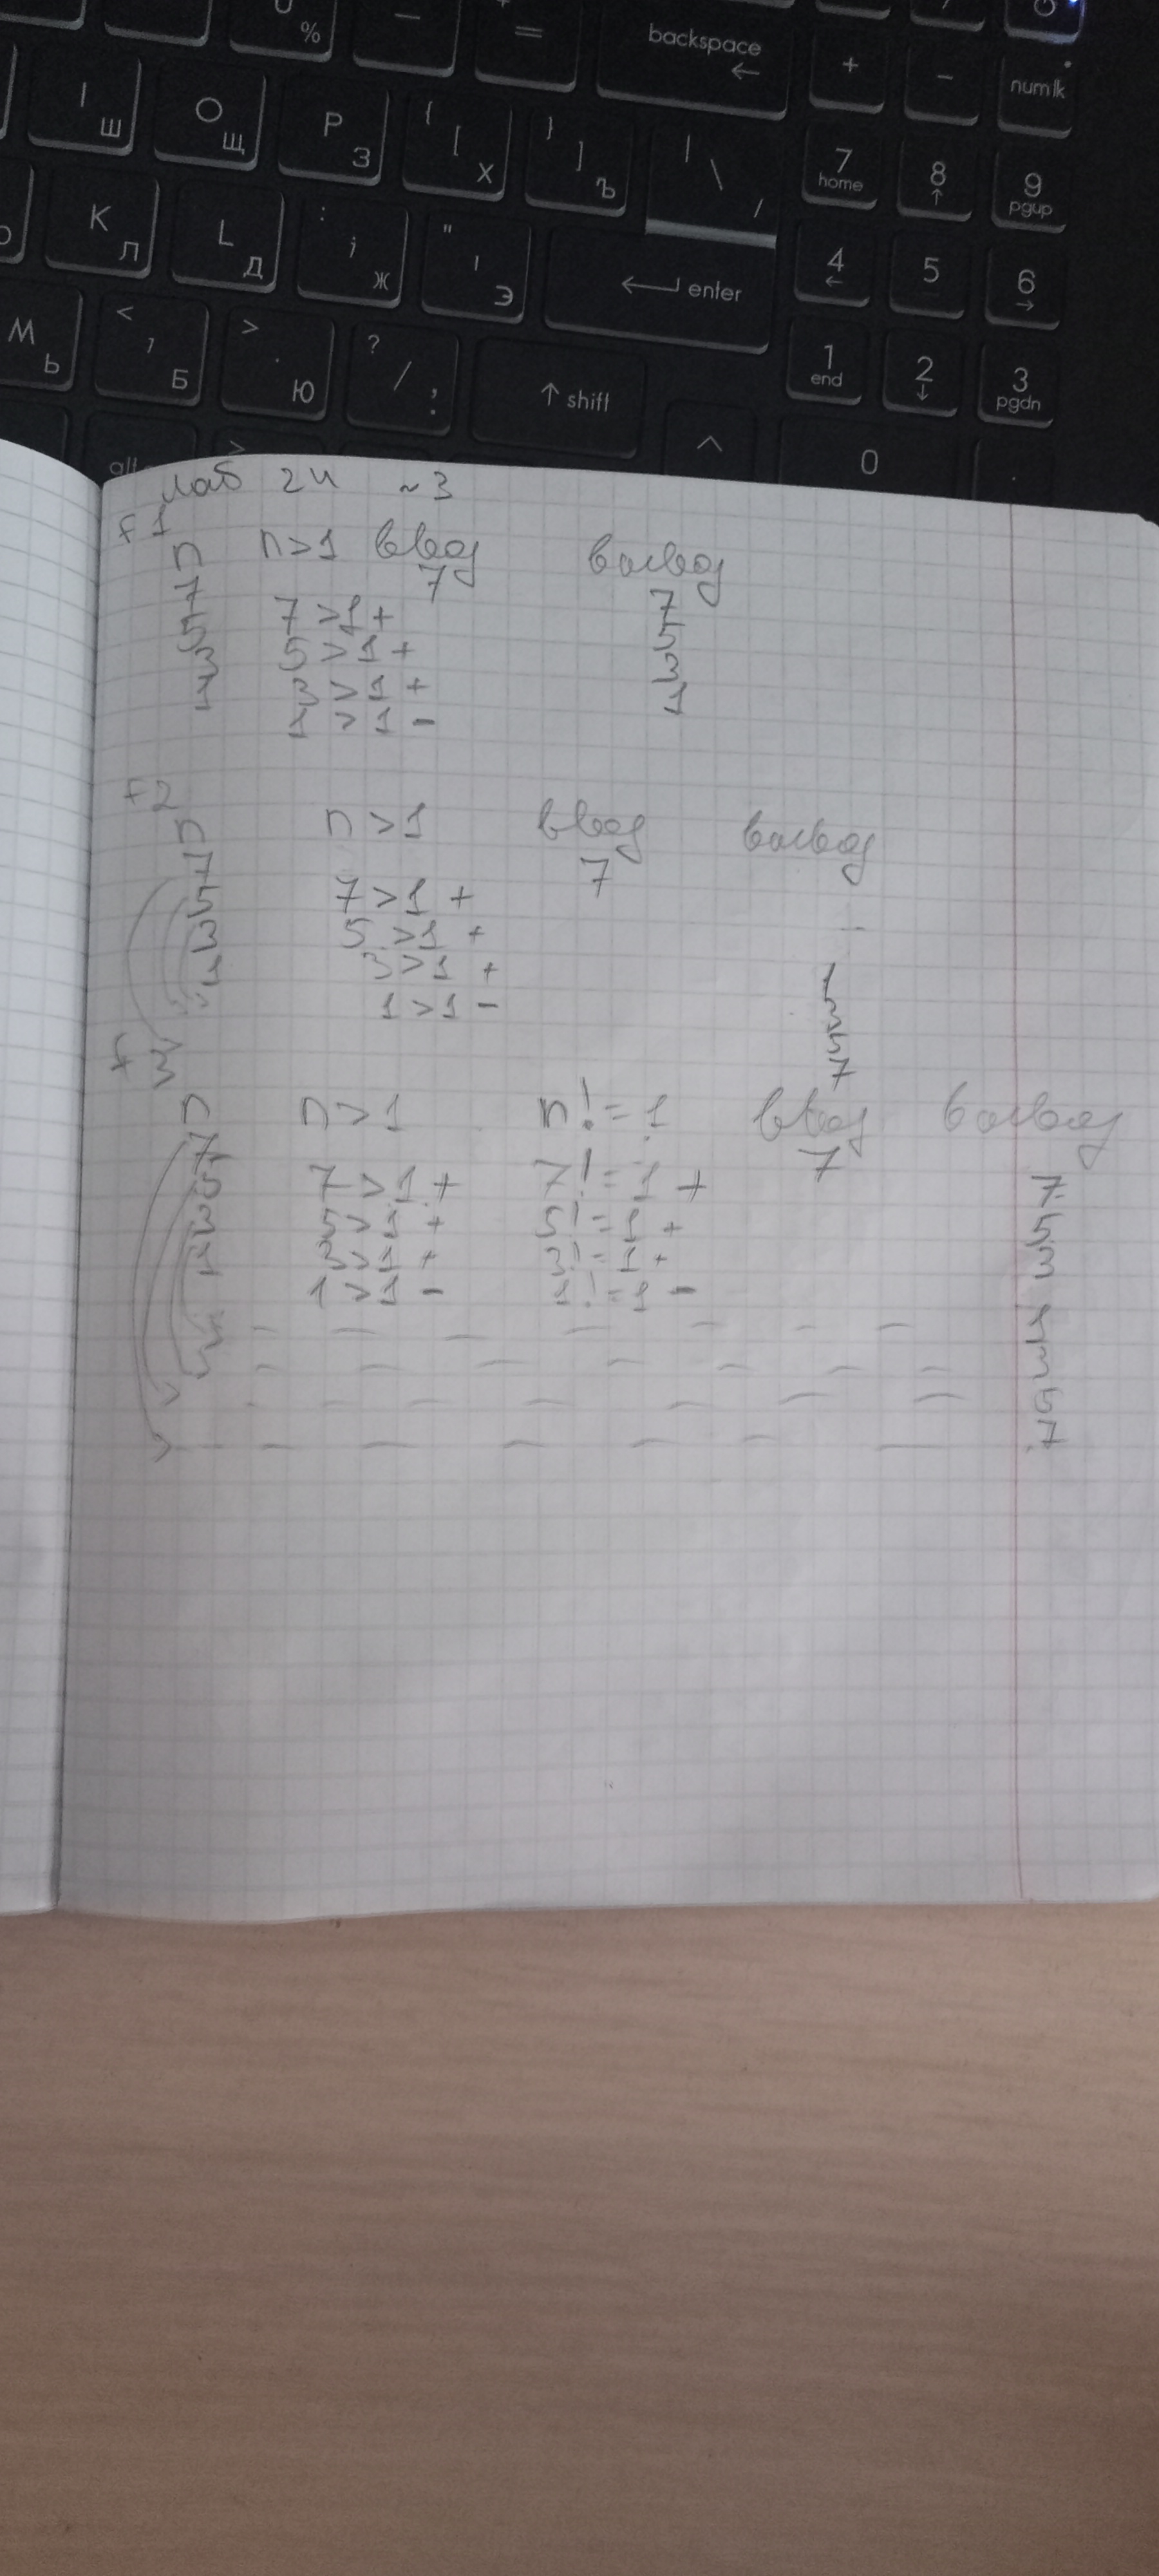 %
-
=
backspace
+
-
num lk
I Ш
O Щ
P З
{ [ Х
} ] Ъ
| \ /
7 home
8
9 pgup
K Л
L Д
: ; Ж
" ' Э
enter
4
5
6
M Ь
< , Б
> . Ю
? / .
shift
1 end
2
3 pgdn
alt
0
.
лаб 24 ~3
f1
n n>1 ввод вывод
7
7 7>1 + 7
5 5>1 + 5
3 3>1 + 3
1 1>1 - 1
f2
n n>1 ввод вывод
7 7
5 7>1 +
3 5>1 +
1 3>1 + 1
1>1 - 3
5
7
f3
n n>1 n!=1 ввод вывод
7 7
7>1 + 7!=1 + 7
5 5>1 + 5!=1 + 5
3 3>1 + 3!=1 + 3
1 1>1 - 1!=1 -
1
3
5
7